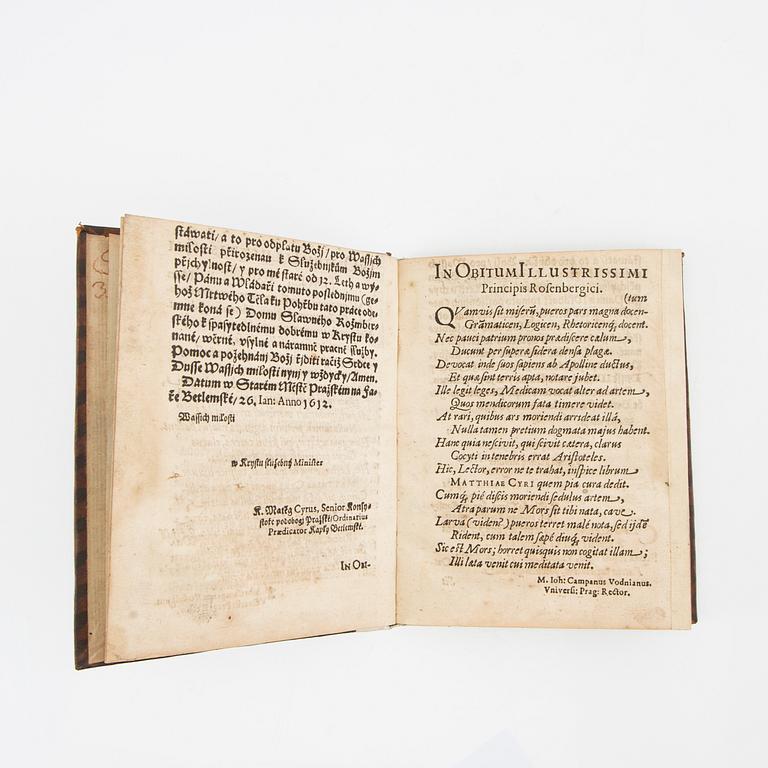 stáwati/ a to pro odplatu Boží/ pro Wassých
milosti přirozenau k Služebnjkům Božjm
přjchylnost/ y pro mé staré od 12. Leth a wý-
sse/ Pánu a Wládaři tomuto poslednjmu (ge-
hož Mrtwého Těla ku Pohřbu tato práce ode-
mne koná se) Domu Slawného Rožmber-
ského k spasytedlnému dobrému w Krystu ko-
nané/ wěrné, vsylné a náramně pracné služby.
Pomoc a požehnánj Božj řjditi račiž Srdce y
Dusse Wassych milosti nynj y wždycky/ Amen.
Datum w Starém Městě Pražském na Fa-
ře Betlemské/ 26. Ian: Anno 1612.
Wassich milostj
w Krystu služebný Minister
K. Matěg Cyrus, Senior Konsy-
stoře podobogj Pražské/ Ordinarius
Prædicator Kaply Betlemské.
IN OBI-
IN OBITUM ILLUSTRISSIMI
Principis Rosenbergici.
(tum
QVamvis sit miserũ, pueros pars magna docen-
Grãmaticen, Logicen, Rhetoricenq́, docent.
Nec pauci patrium pronos prædiscere cælum,
Ducunt per superæ sidera densa plagæ.
Devocat inde suos sapiens ab Apolline ductus,
Et quæ sint terris apta, notare jubet.
Ille legit leges, Medicam vocat alter ad artem,
Quos mendicorum fata timere videt.
At rari, quibus ars moriendi arrideat illa,
Nulla tamen pretium dogmata majus habent.
Hanc quia nescivit, qui scivit cætera, clarus
Cocyti in tenebris errat Aristoteles.
Hic, Lector, error ne te trahat, inspice librum
MATTHIAE CYRI quem pia cura dedit.
Cumq́, piè discis moriendi sedulus artem,
Atra parum ne Mors sit tibi nata, cave.
Larva (viden?) pueros terret malè nota, sed ijdẽ
Rident, cum talem sæpé diuq́, vident.
Sic est Mors; horret quisquis non cogitat illam;
Illi læta venit cui meditata venit.
M. Ioh: Campanus Vodnianus.
Vniversi: Prag: Rector.